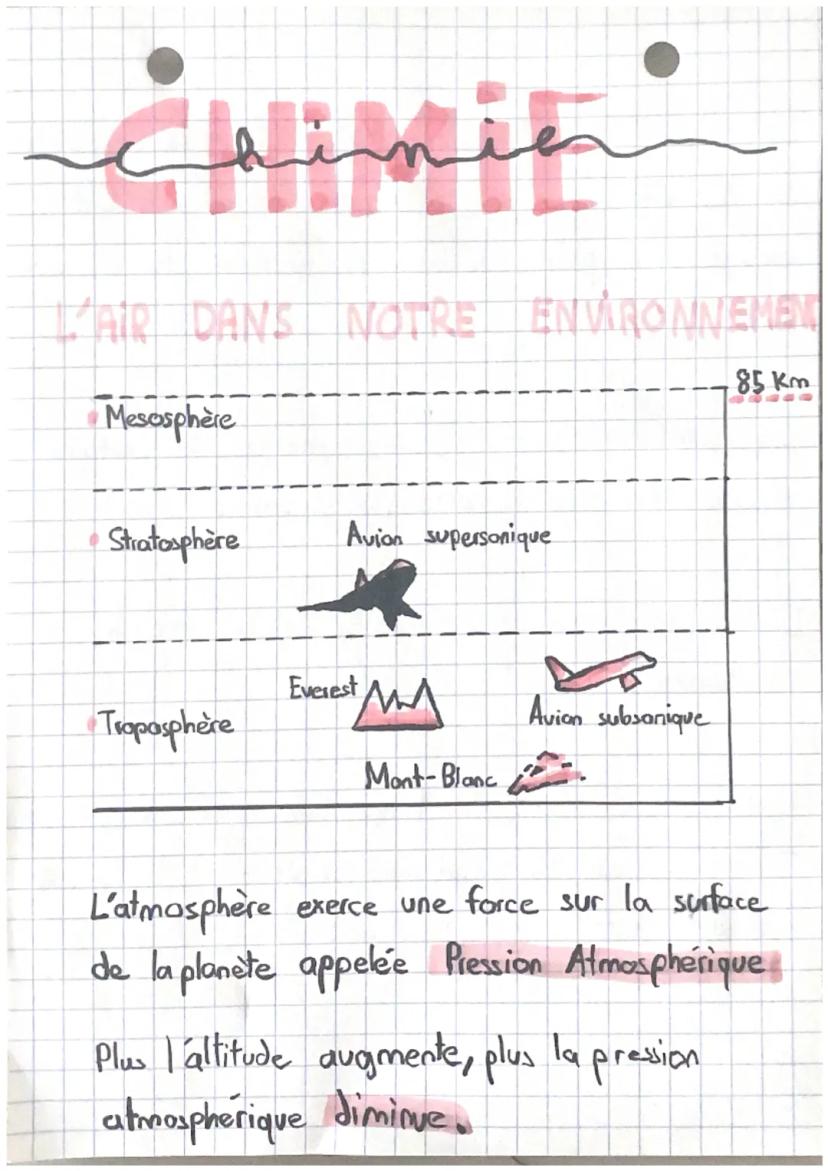 CHiMiE
Chimie
L'AiR DANS NOTRE ENViRONNEMENT
85 Km
Mesosphère
Stratosphère
Avion supersonique
Everest
Troposphère
Avion subsonique
Mont-Blanc
L'atmosphère exerce une force sur la surface
de la planète appelée Pression Atmosphérique
Plus l'altitude augmente, plus la pression
atmosphérique diminue.